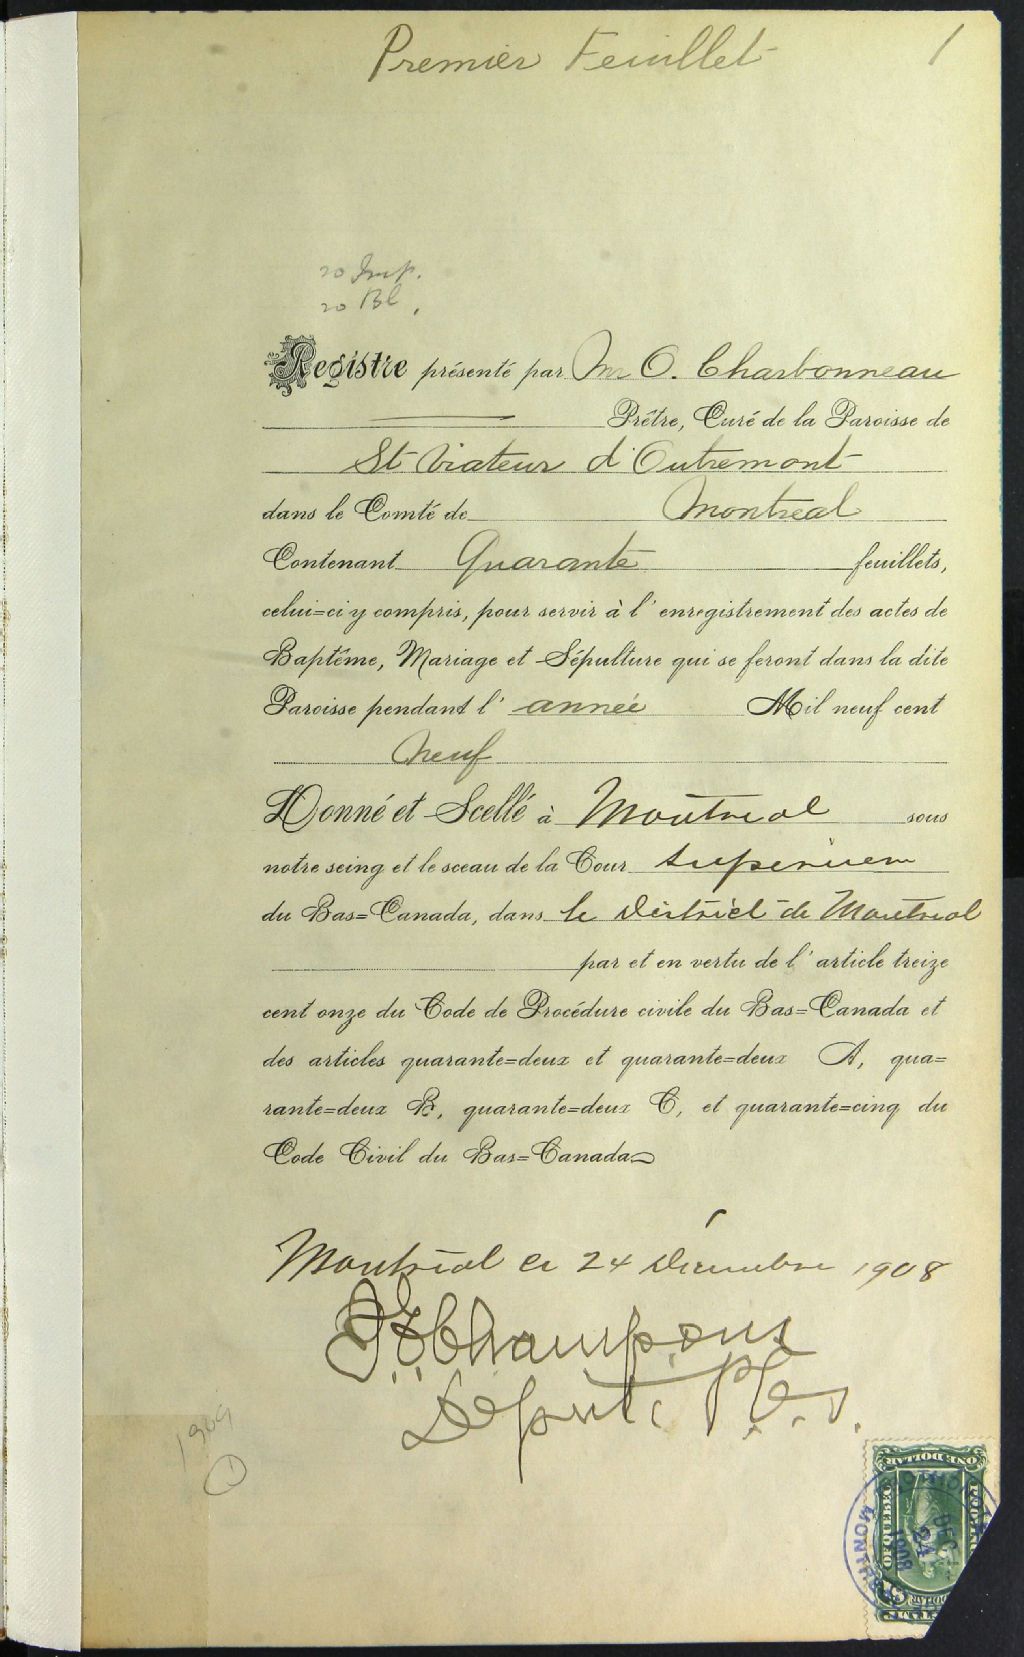 Premier Feuillet 1
20 Imp.
20 Bl.
Registre présenté par Mr O. Charbonneau
Prêtre, Curé de la Paroisse de
St Viateur d'Outremont
dans le Comté de Montreal
Contenant Quarante feuillets,
celui=ci y compris, pour servir à l'enregistrement des actes de
Baptême, Mariage et Sépulture qui se feront dans la dite
Paroisse pendant l'année Mil neuf cent
Neuf
Donné et Scellé à Montreal sous
notre seing et le sceau de la Cour Superieure
du Bas=Canada, dans le District de Montreal
par et en vertu de l'article treize
cent onze du Code de Procédure civile du Bas=Canada et
des articles quarante=deux et quarante=deux A, qua=
rante=deux B, quarante=deux C, et quarante=cinq du
Code Civil du Bas=Canada
Montréal ce 24 Décembre 1908
Député P.C.S.
1909
1
ONE DOLLAR
OF QUEBEC
DEC
24
1908
MONTREAL
DOLLAR
STAMP